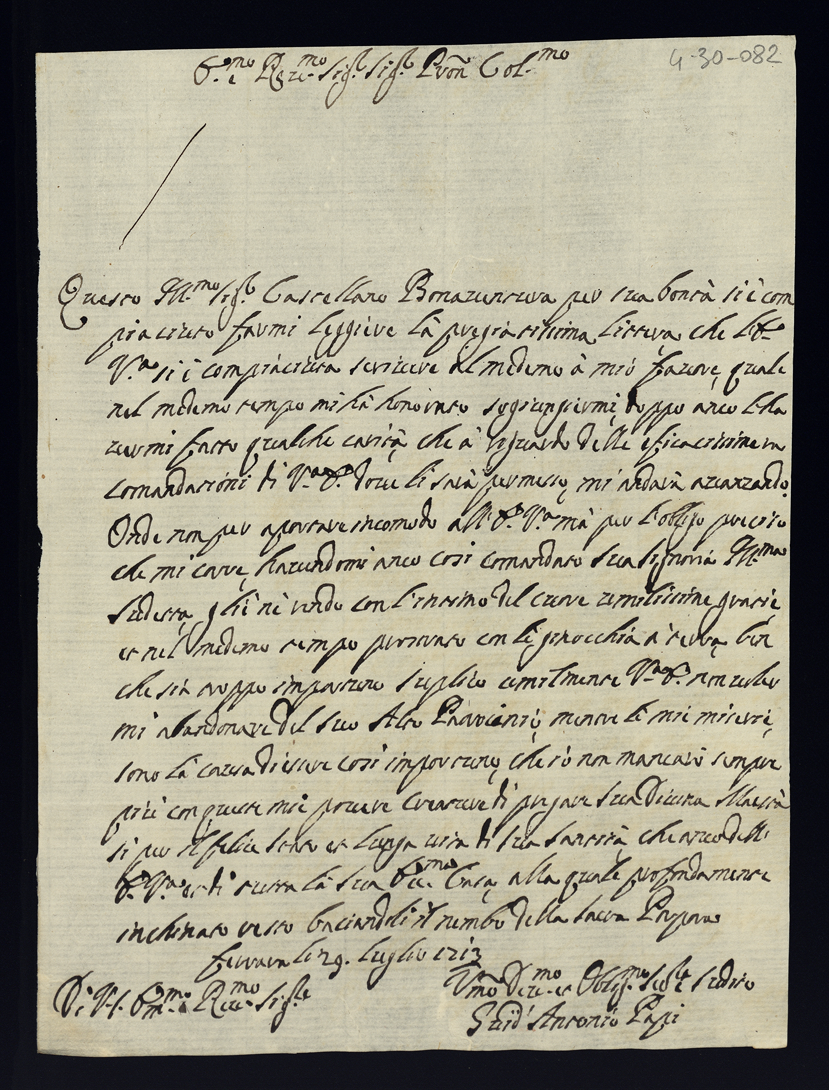 4-30-082
E.mo e Rev.mo Sig.r Sig.r Pron Col.mo
Questo Ill.mo Sig.r Castellano Bonaventura per sua bontà si è com
piaciuto farmi leggiere la pregiatissima littera che l'E.
V.a si è compiaciuta scrivere al medemo à mio favore, quale
nel medemo tempo mi hà honorato sogiungiermi, doppo anco
fatto qualche carità, che à riguardo delle
comandationi di V.a E. dove li sarà permesso, mi andarà avanzando.
Onde non per aportare incomodo all' E. V.a mà per l'obligo preciso
che mi corre, havendomi anco così comandato Sua Signoria Ill.ma
sudetta, gli ne rendo con l'intimo del cuore umilissime gratie,
et nel medemo tempo prostrato con le ginocchia à terra, ben
che sia troppo importuno suplico umilmente V.a E. non voler
mi abandonare del suo Alto Patrocinio, mentre le mie miserie,
sono la causa di essere così importuno, che io non mancarò sempre
più con queste mie povere Creature di pregare Sua Divina Maestà
si per il felice stato et lunga vita di Sua Santità, che anco dell'
E. V.a et di tutta la Sua Ecc.ma Casa, alla quale profondamente
inchinato resto baciandoli il lembo della Sacra Porpora
Ferrara li 29. Luglio 1713
Di V.S. Em.ma e Rev.ma Sig.re
Um.mo Dev.mo et Oblig.mo Ser.re sudito
Guid' Antonio Papi